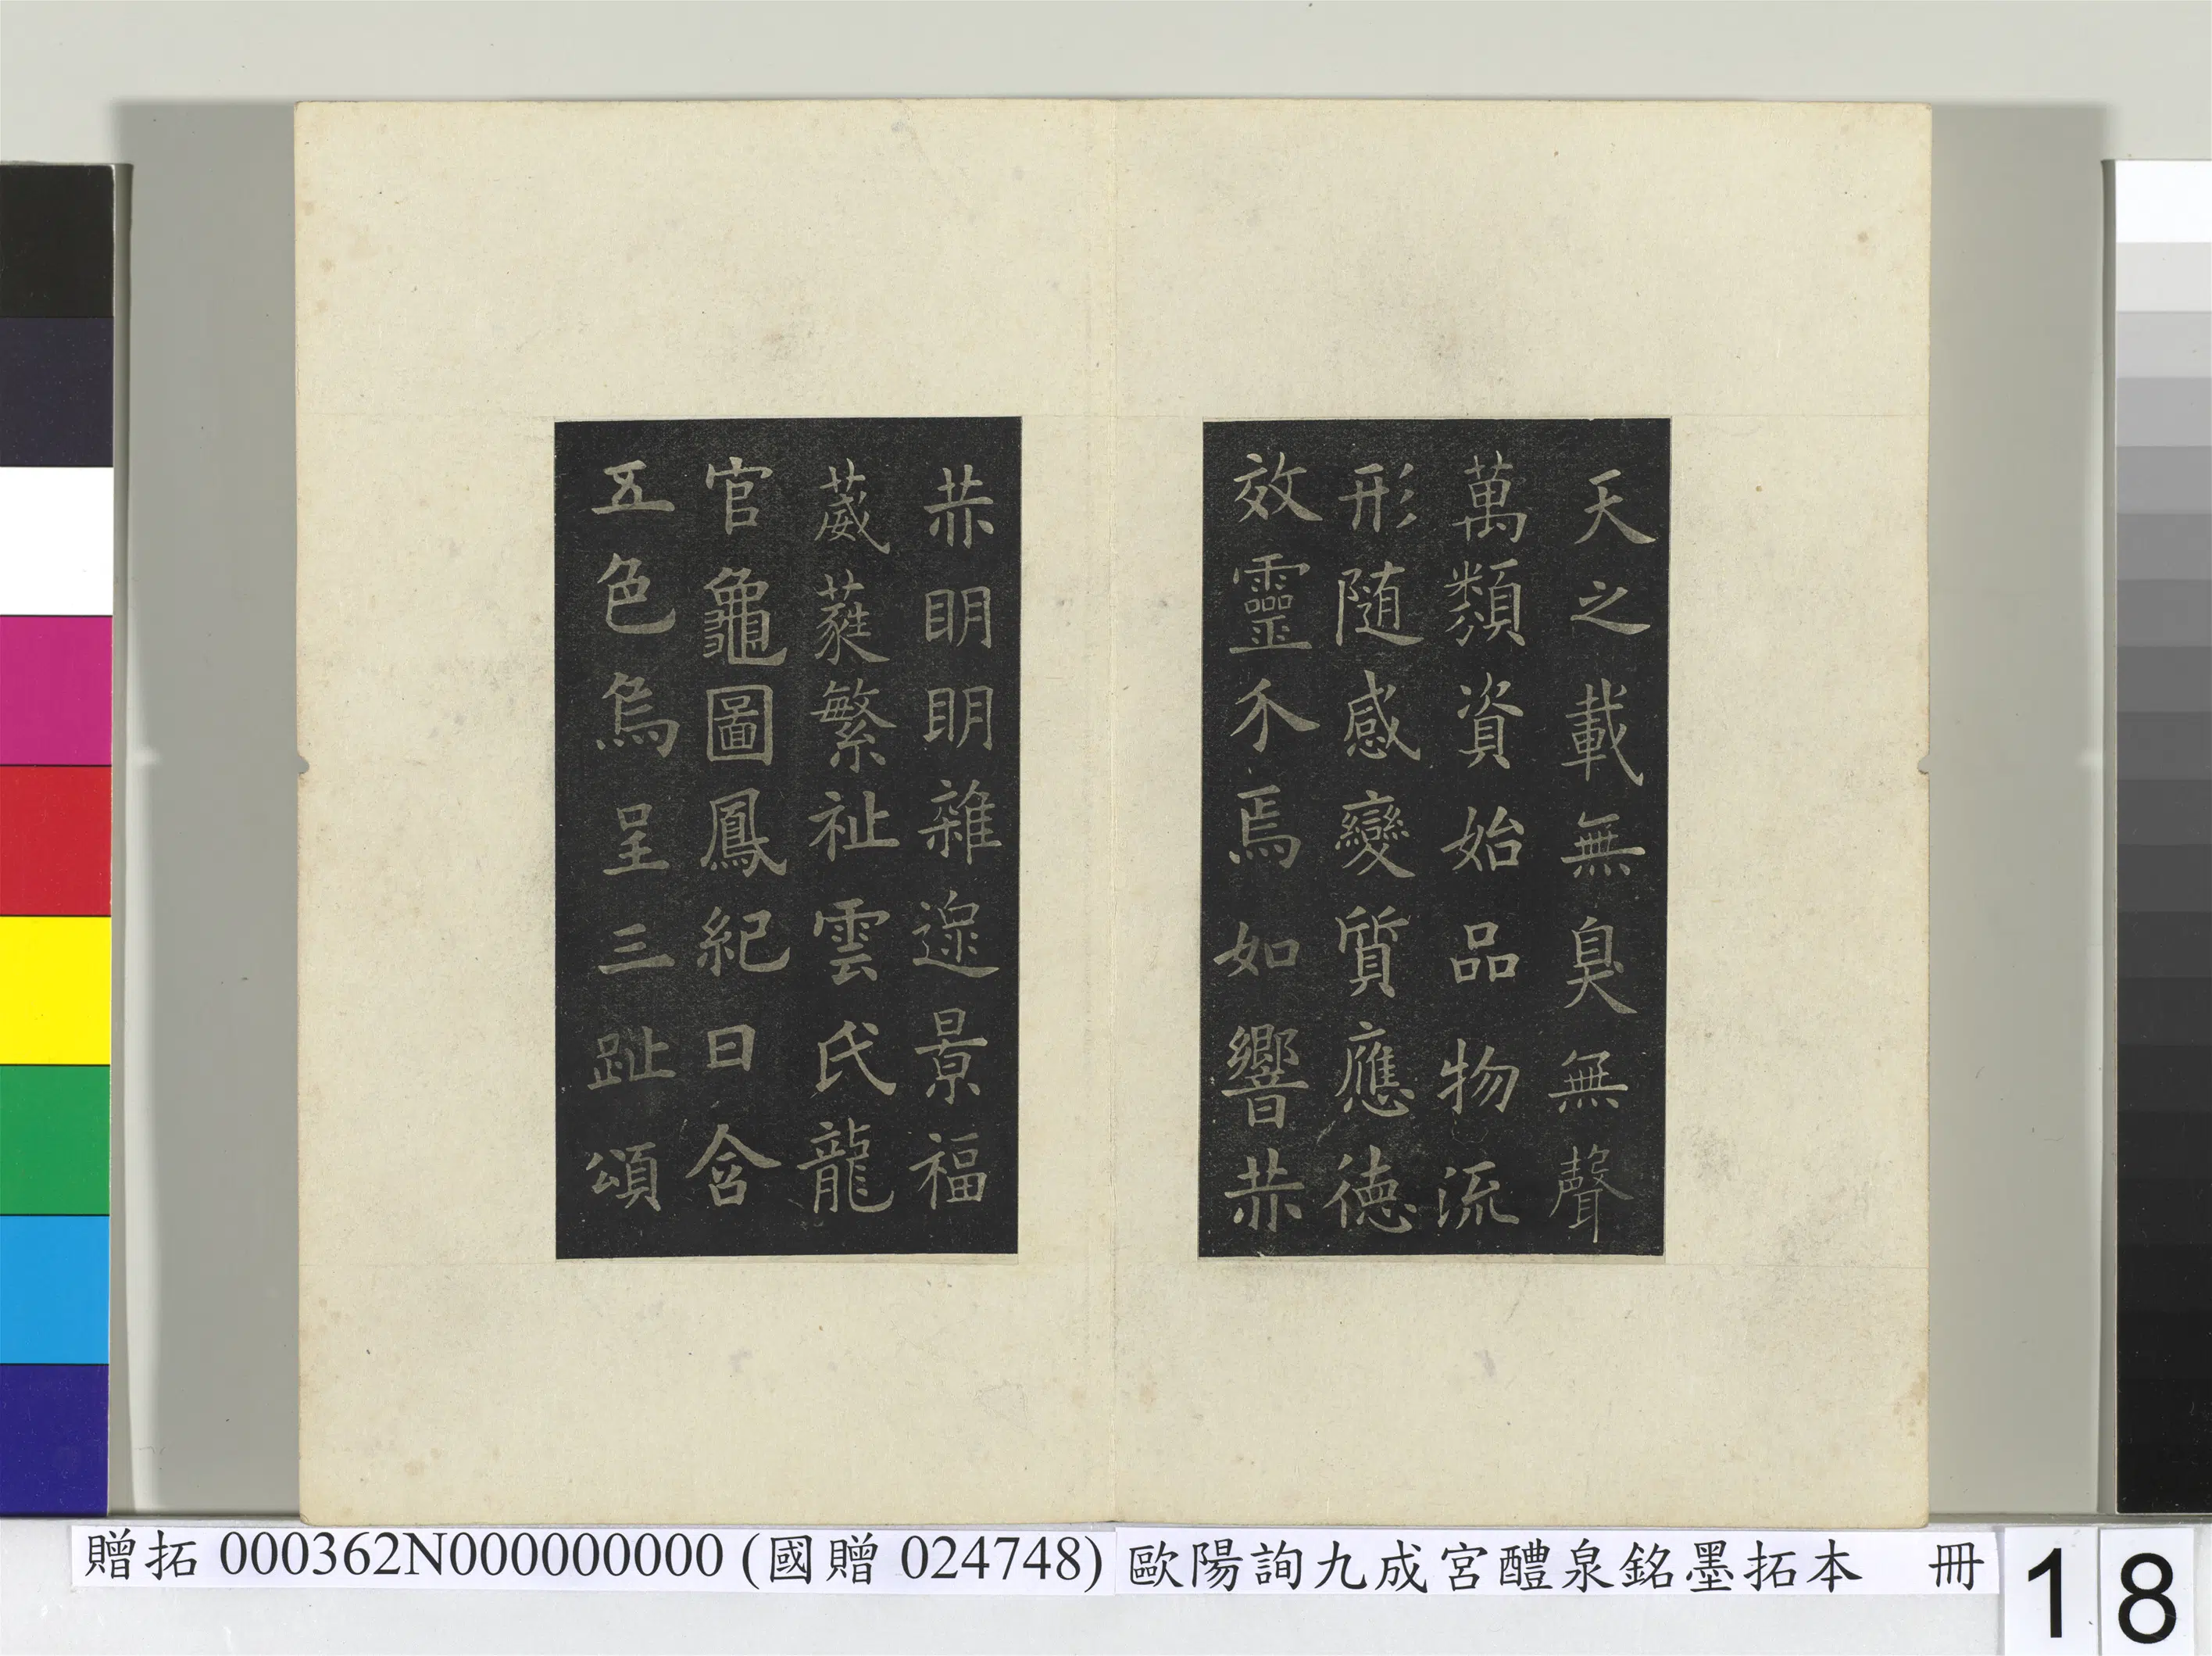 天之載無臭無聲
萬類資始品物流
形隨感變質應德
效靈介焉如響赫
赫明明雜遝景福
葳蕤繁祉雲氏龍
官龜圖鳳紀日含
五色烏呈三趾頌
贈拓000362N000000000 (國贈024748) 歐陽詢九成宮醴泉銘墨拓本 冊 1 8